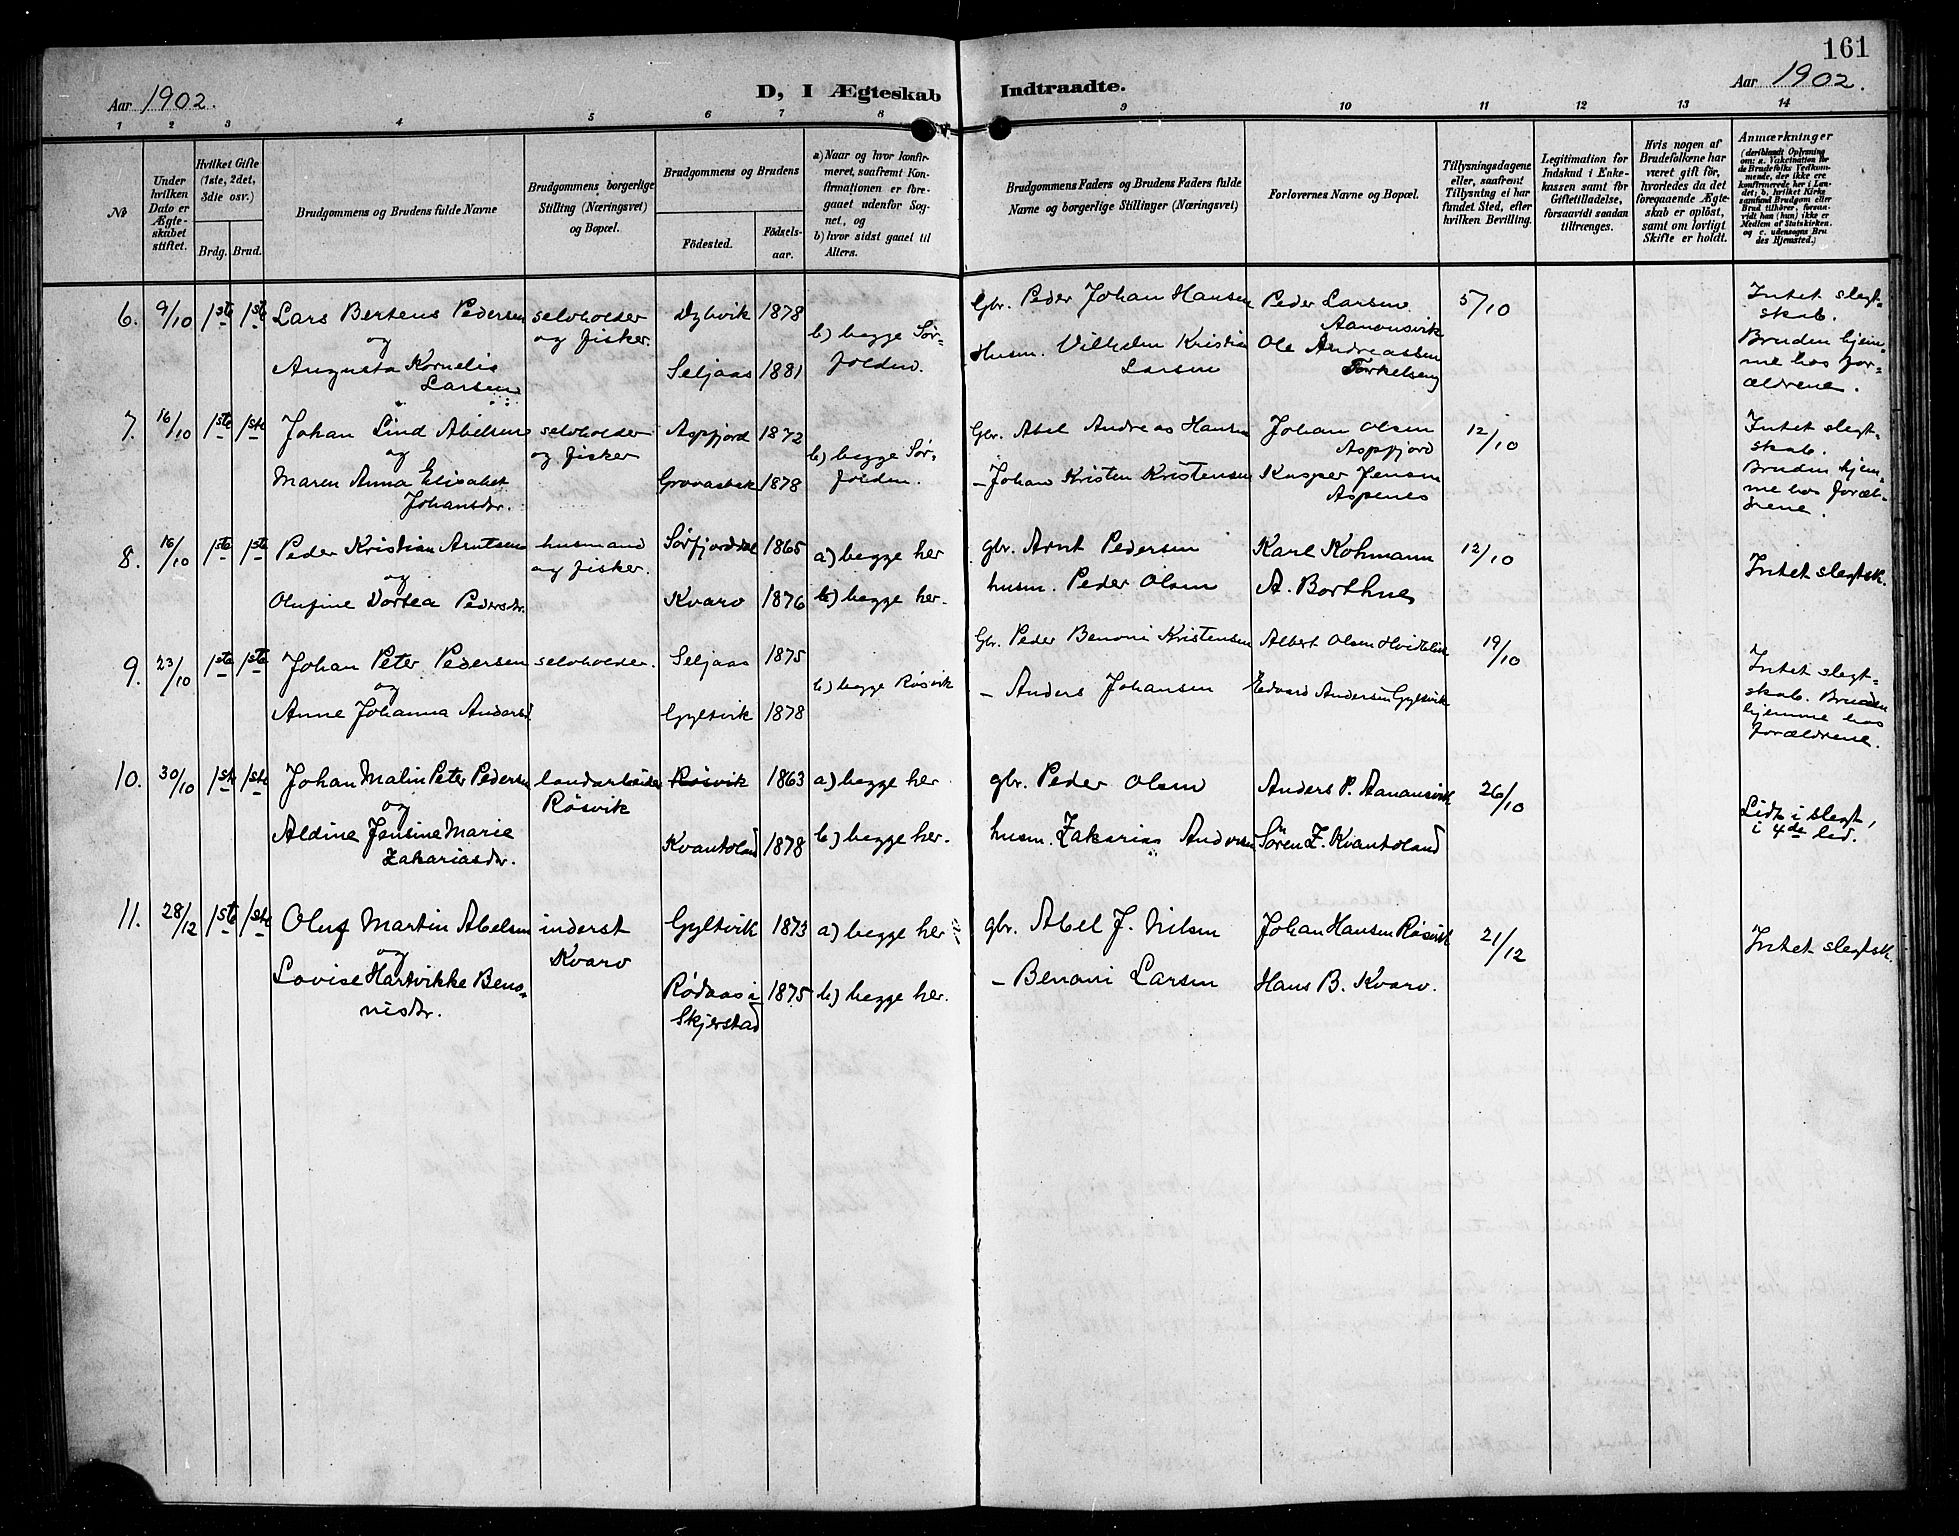 161
Aar 1902.
D, I Ægteskab Indtraadte.
Aar 1902.
1 2 3 4 5 6 7 8 9 10 11 12 13 14
№
Under hvilken Dato er Ægteskabet stiftet.
Hvilket Gifte (1ste, 2det, 3die osv.)
Brdg. Brud.
Brudgommens og Brudens fulde Navne
Brudgommens borgerlige Stilling (Næringsvei) og Bopæl.
Brudgommens og Brudens
Födested.
Födselsaar.
a) Naar og hvor konfirmeret, saafremt Konfirmationen er foregaaet udenfor Sognet, og
b) hvor sidst gaaet til Alters.
Brudgommens Faders og Brudens Faders fulde Navne og borgerlige Stillinger (Næringsvei)
Forlovernes Navne og Bopæl.
Tillysningsdagene eller, saafremt Tillysning ei har fundet Sted, efter hvilken Bevilling.
Legitimation for Indskud i Enkekassen samt for Giftetilladelse, forsaavidt saadan tiltrænges.
Hvis nogen af Brudefolkene har været gift før, hvorledes da det foregaaende Ægteskab er oplöst, samt om lovligt Skifte er holdt.
Anmærkninger
(deriblandt Oplysning om: a. Vakcination for de Brudefolks Vedkommende, der ikke ere konfirmerede her i Landet; b. hvilket Kirkesamfund Brudgom eller Brud tilhörer, forsaavidt han (hun) ikke er Medlem af Statskirken, og c. udensogns Brudes Hjemsted.)
6. 9/10 1ste 1ste Lars Bertens Pedersen selvholder Dybvik 1878
og og fisker.
b) begge Sørfolden.
Augusta Kornelia Larsen Seljaas 1881
Gbr. Peder Johan Hansen Peder Larsen Aanonsvik 5/10
Husm. Vilhelm Kristian Larsen Ole Andreassen Torkelseng
Intet slegtskab.
Bruden hjemme hos forældrene.
7. 16/10 1ste 1ste Johan Lind Abelsen selvholder Aspfjord 1872
og og fisker
b) begge Sørfolden.
Maren Anna Elisabet Johansdr. Grovasbak 1878
Gbr. Abel Andreas Hansen Johan Olsen Aspfjord 12/10
– Johan Kristen Kristensen Kasper Jensen Aspenes
Intet slegtskab.
Bruden hjemme hos forældrene.
8. 16/10 1ste 1ste Peder Kristian Arntsen husmand Sørfjorddal 1865 a) begge her
og og fisker.
Olufine Dortea Pedersdr. Kvarv 1876 b) begge her.
gbr. Arnt Pedersen Karl Kohmann 12/10
husm. Peder Olsen A. Borthne
Intet slegtsk.
9. 23/10 1ste 1ste Johan Peter Pedersen selvholder. Seljaas 1875
og b) begge Røsvik
Anne Johanna Andersd. Gyltvik 1878
Gbr. Peder Benoni Kristensen Albert Olsen 19/10
– Anders Johansen Edvard Andersen Gyltvik
Intet slegtskab. Bruden hjemme hos forældrene.
10. 30/10 1ste 1ste Johan Malin Peter Pedersen landarbeider Røsvik 1863 a) begge her
og Røsvik
Aldine Jensine Marie Zakariasdr. Kvantoland 1878 b) begge her.
gbr. Peder Olsen Anders P. Aanonsvik 26/10
husm. Zakarias Andersen Sören Z. Kvantoland
Lidt i slegt, i 4de led.
11. 28/12 1ste 1ste Oluf Martin Abelsen inderst Gyltvik 1873 a) begge her
og Kvarv
Lovise Hartvikke Benonisdr. Rødaas i Skjerstad 1875 b) begge her.
gbr. Abel J. Nilsen Johan Hansen Røsvik 21/12
– Benoni Larsen Hans B. Kvarv.
Intet slegtsk.